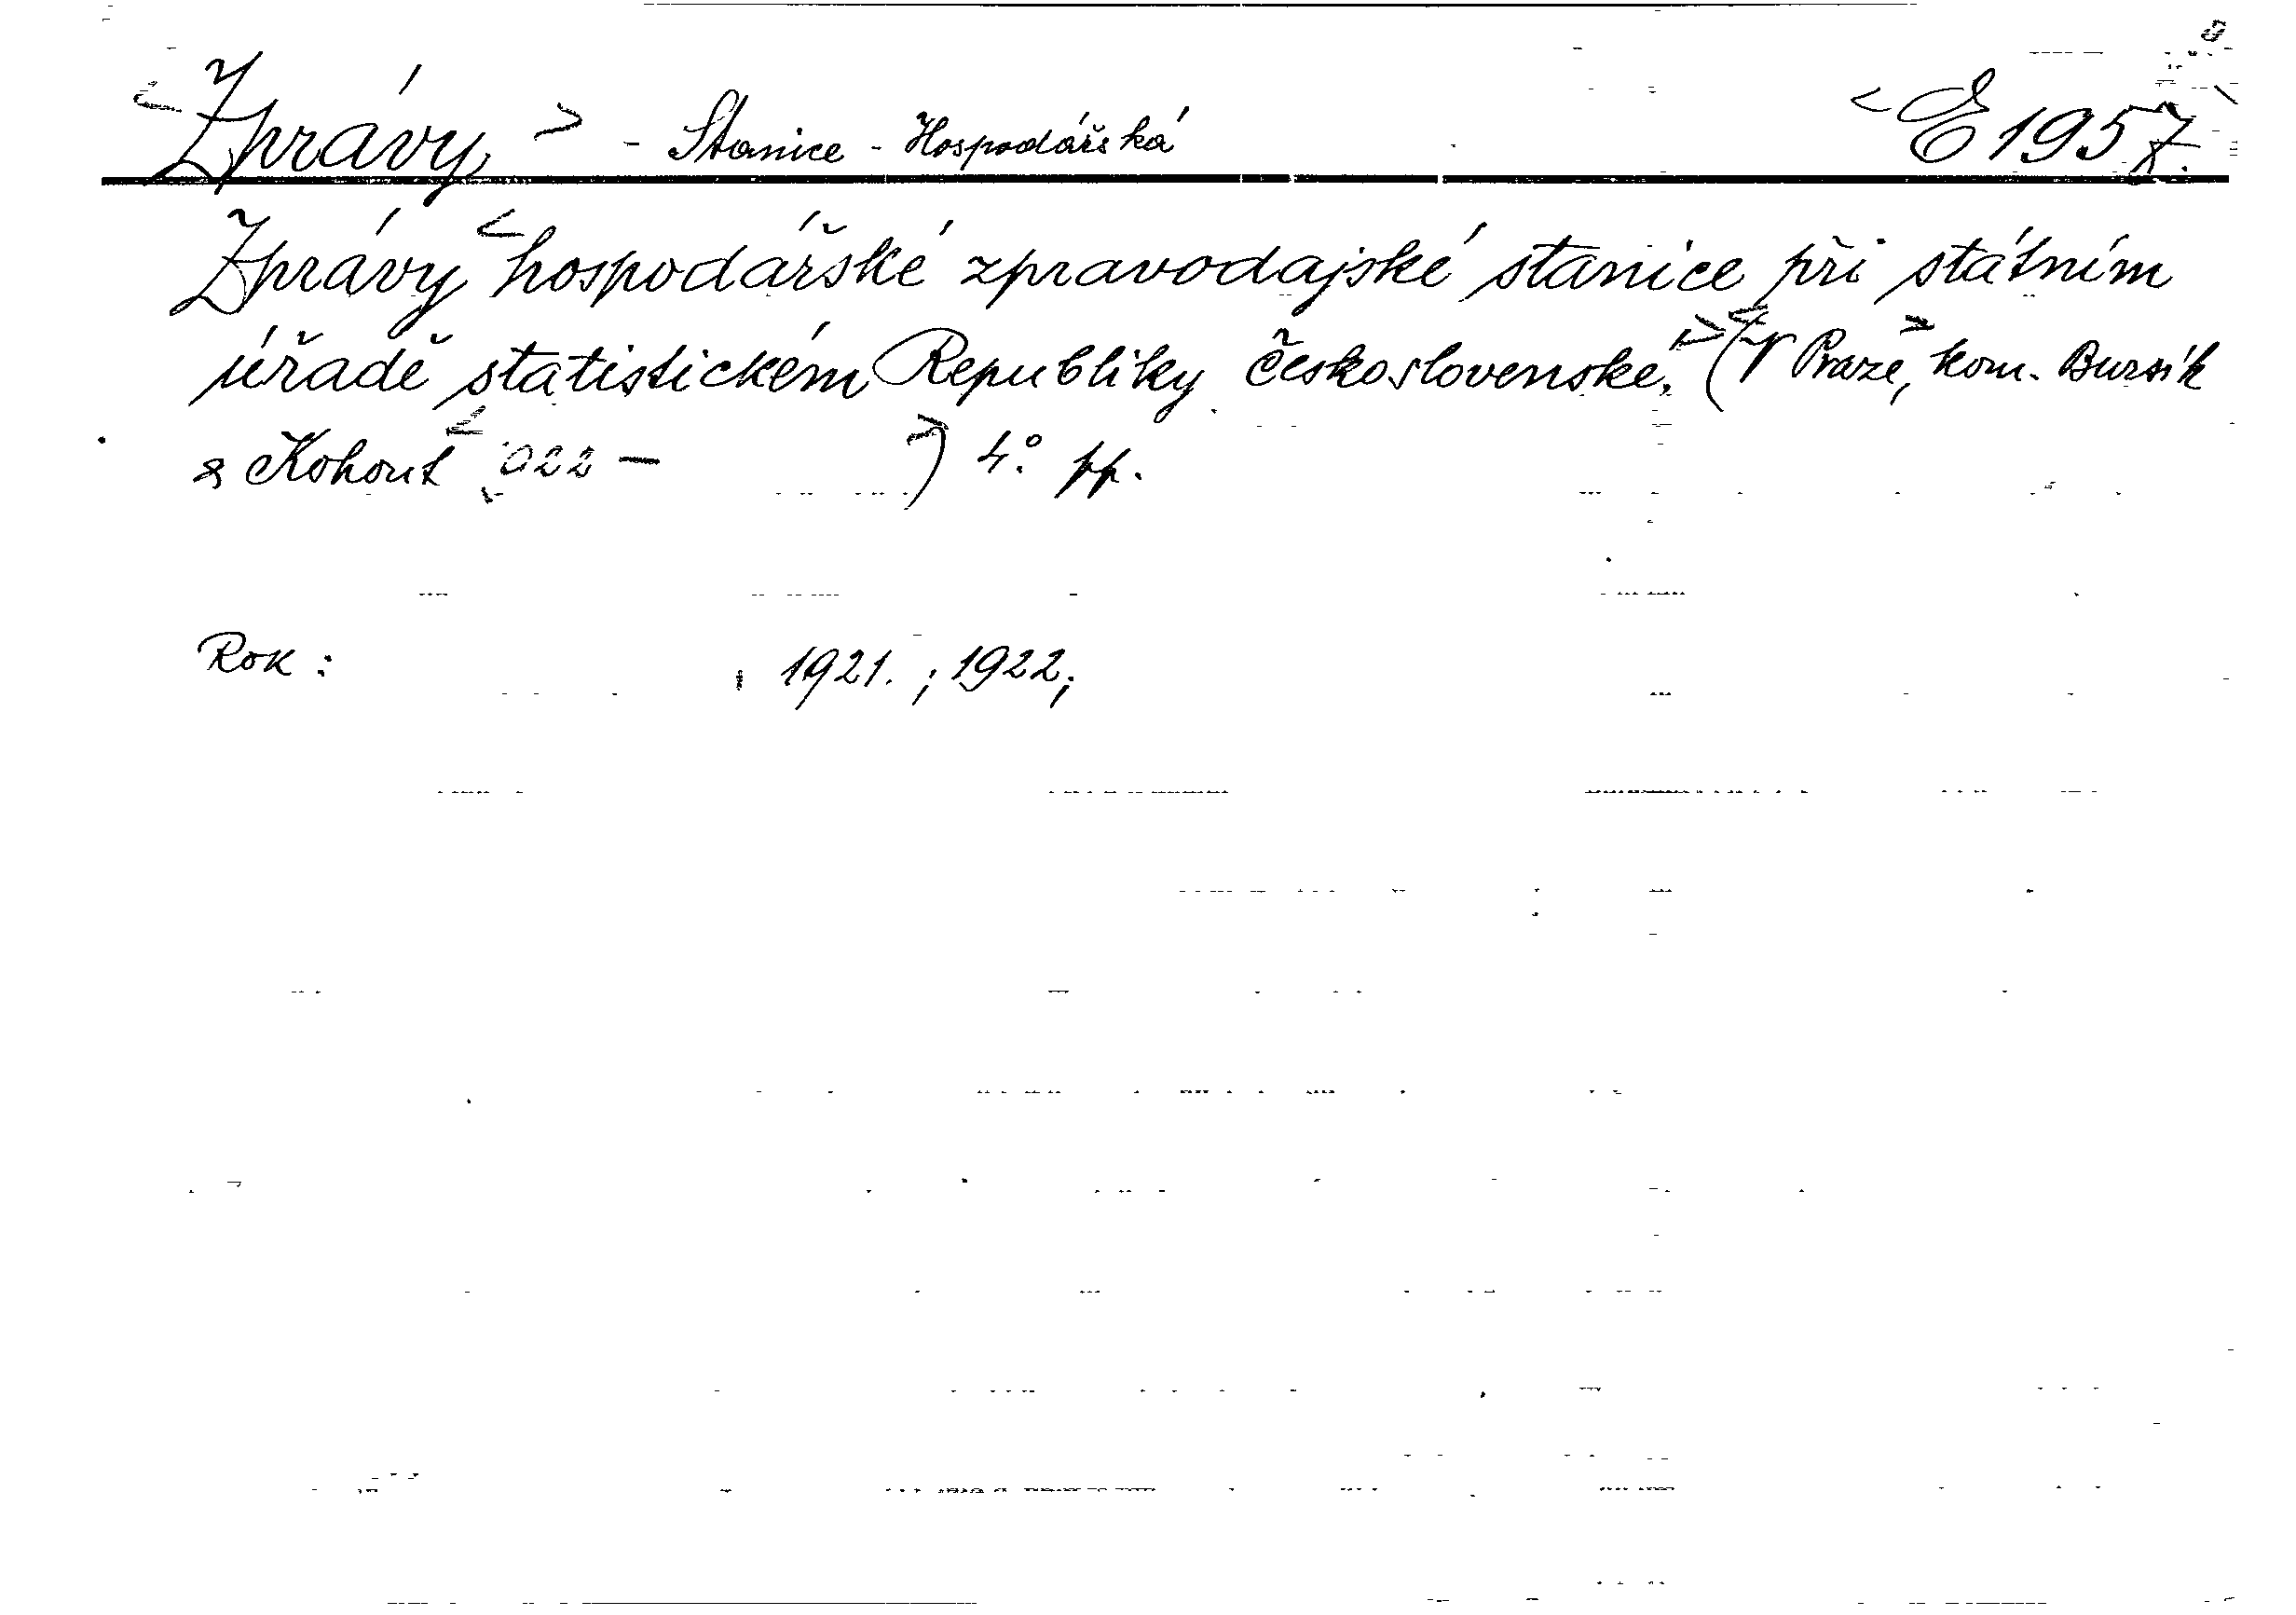 <Zprávy> - Stanice - Hospodářská <E 1957.
Zprávy <hospodářské zpravodajské stanice při státním
úřadě statistickém Republiky Československé.> (<V Praze,> kom. Bursík
& Kohout < 922 — >) 4.° pp.
Rok: ; 1921. ; 1922;